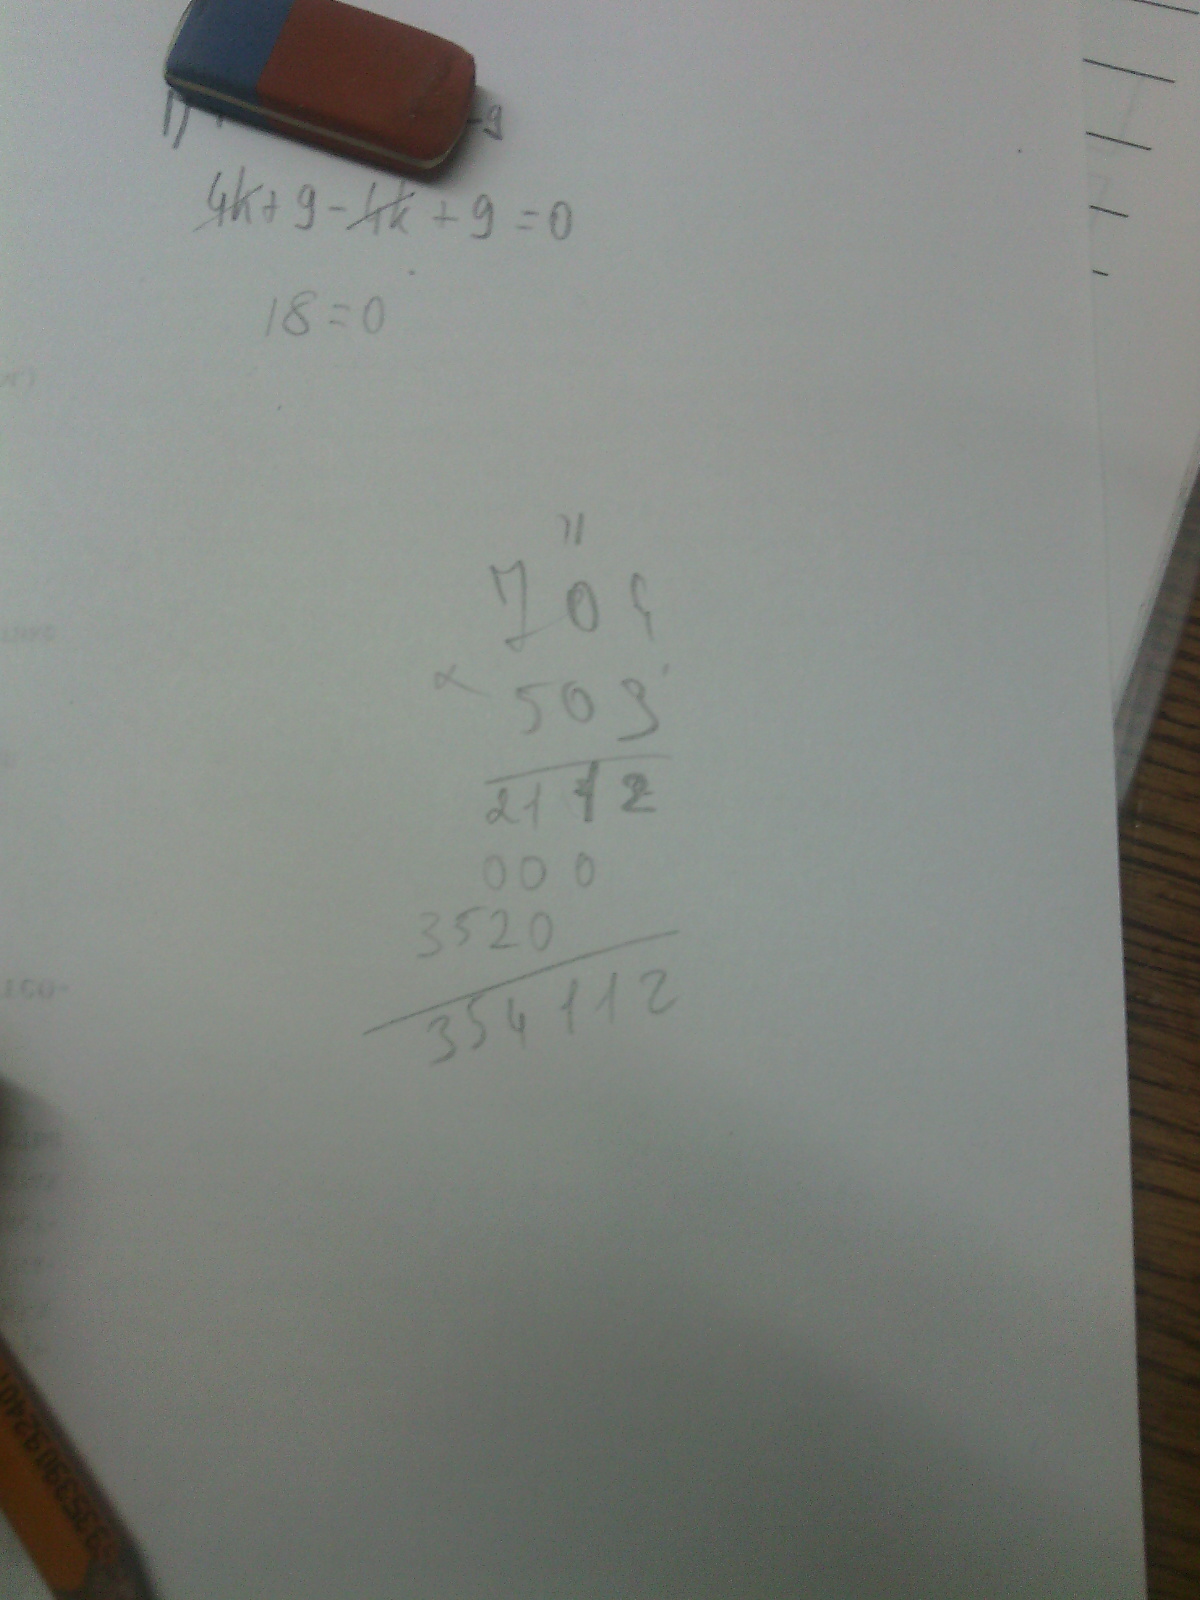 1) -9
4k+9-4k+9=0
18=0
11
704
× 503
2112
000
3520
354112